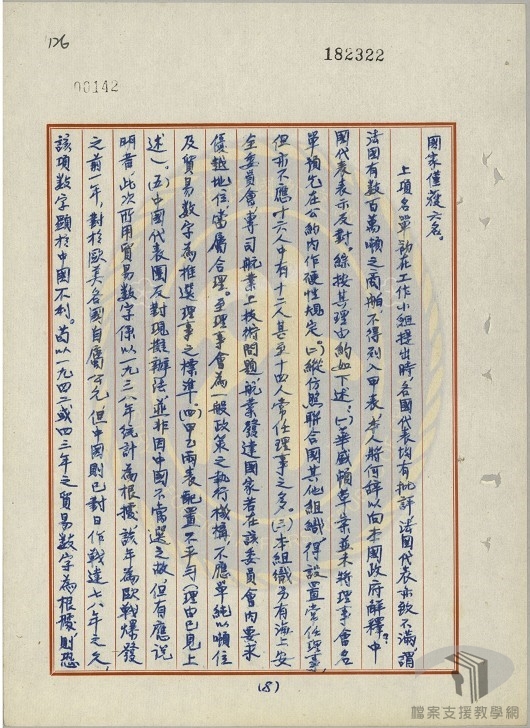 126
182322
00142
國家僅復六名。
上項名單初在工作小組提出時，各國代表均有批評法國代表亦致不滿，謂
法國有數百萬噸之商船，不得列入甲表，本人將何辭以向本國政府解釋？中
國代表表示反對。綜按其理由約如下述：(一)華盛頓草案並未將理事會名
單預先在公約內作硬性規定。(二)縱仿照聯合國其他組織，得設置常任理事，
但亦不應十六人中有十二人甚至十四人常任理事之多。(三)本組織另有海上安
全委員會專司航業上技術問題，航業發達國家者在該委員會內要求
優越地位，當屬合理。至理事會為一般政策之執行機構，不應單純以噸位
及貿易數字為推選理事之標準。(四)甲乙兩表配置不平均(理由已見上
述)。(五)中國代表團反對現擬辦法，並非因中國不當選之故，但有應說
明者，此次所用貿易數字係以一九三八年統計為根據，該年為歐戰爆發
之前一年，對於歐美各國自屬公允，但中國則已對日作戰達七八年之久，
該項數字顯於中國不利。苟以一九四二或四三年之貿易數字為根據，則恐
(8)
檔案支援教學網